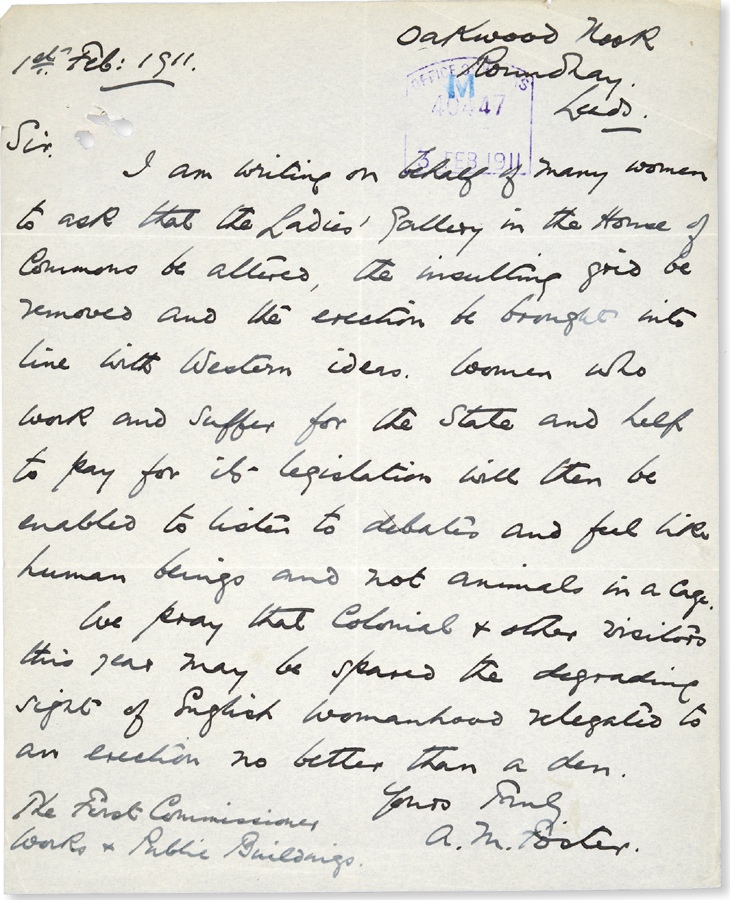 Oakwood Nook
1st Feb: 1911.
Roundhay.
Leeds.
OFFICE OF WORKS
M
40447
3 FEB 1911
Sir.
I am writing on behalf of many women
to ask that the Ladies' Gallery in the House of
Commons be altered, the insulting grid be
removed and the erection be brought into
line with Western ideas. Women who
work and suffer for the State and help
to pay for its legislation will then be
enabled to listen to debates and feel like
human beings and not animals in a cage.
We pray that Colonial & other visitors
this year may be spared the degrading
sight of English womanhood relegated to
an erection no better than a den.
Yours Truly
A. M. Foster.
The First Commissioner
Works & Public Buildings.